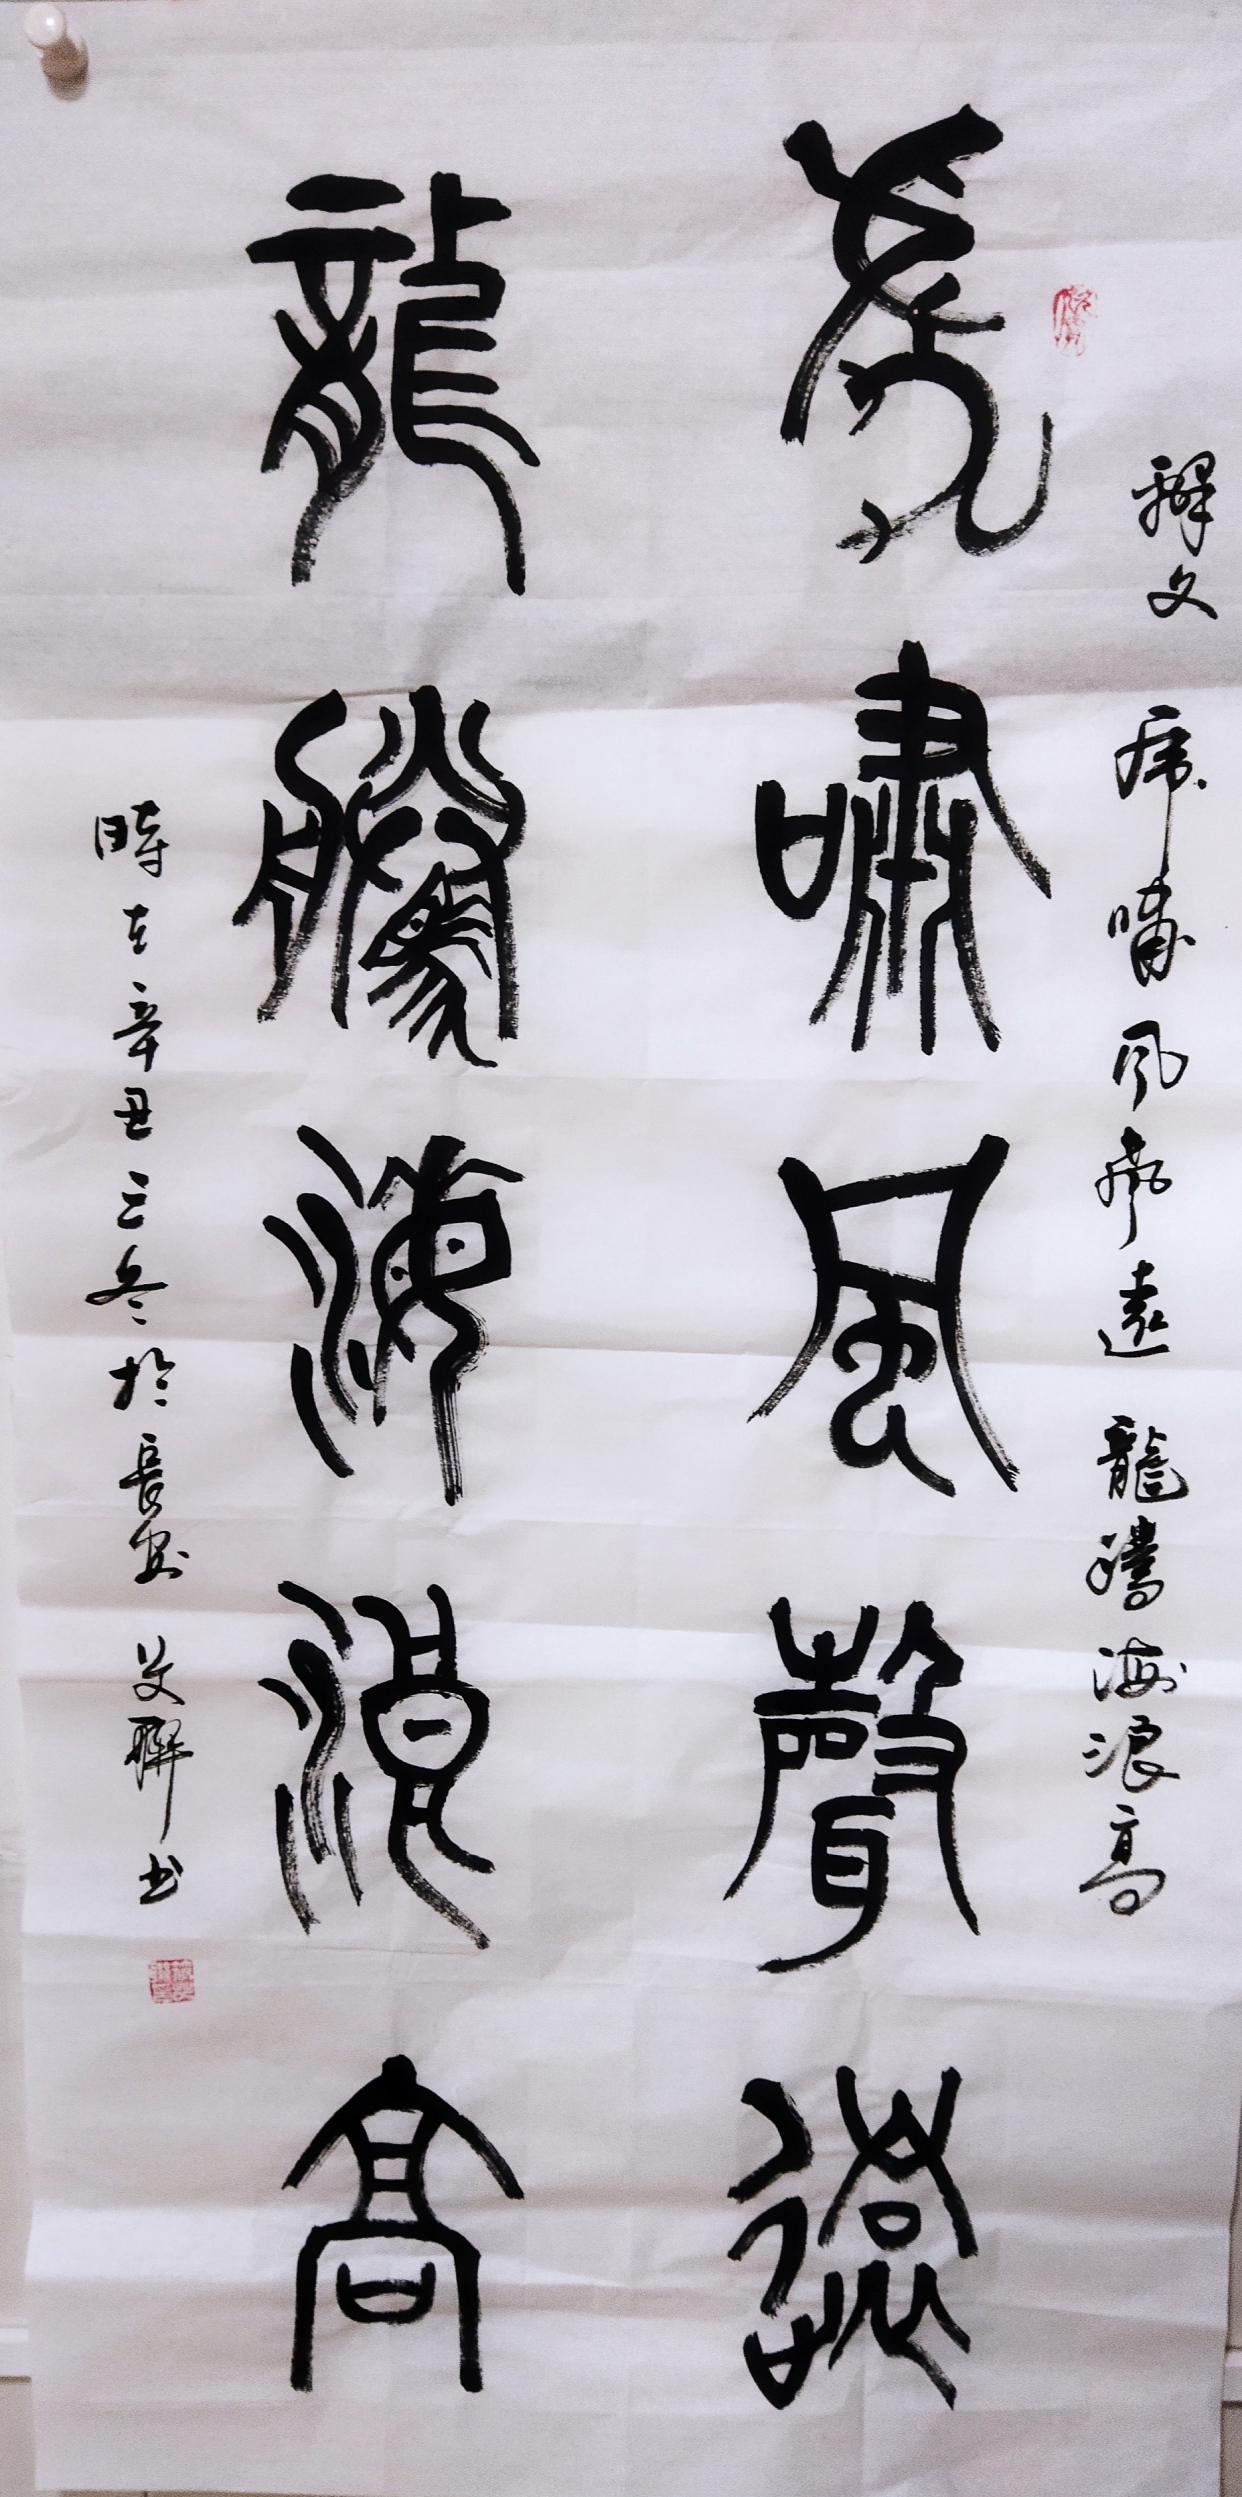 釋文 虎嘯風聲遠 龍騰海浪高
虎嘯風聲遠
龍騰海浪高
時在辛丑三冬於長安 艾聯书